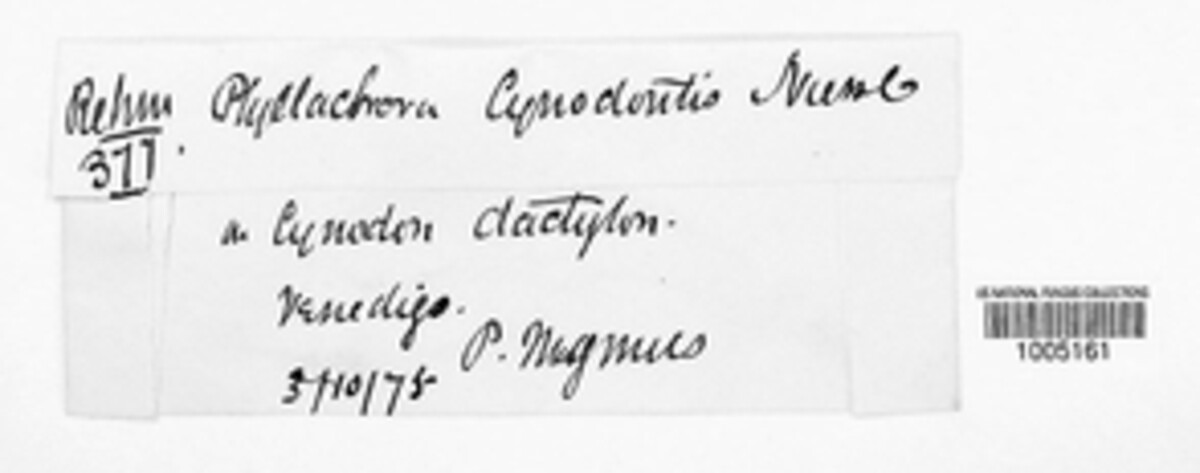 Rehm Phyllachora Cynodontis Niessl
377.
a. Cynodon dactylon.
Venedigo.
P. Magnus
3/10/75
US NATIONAL FUNGUS COLLECTIONS
1005161